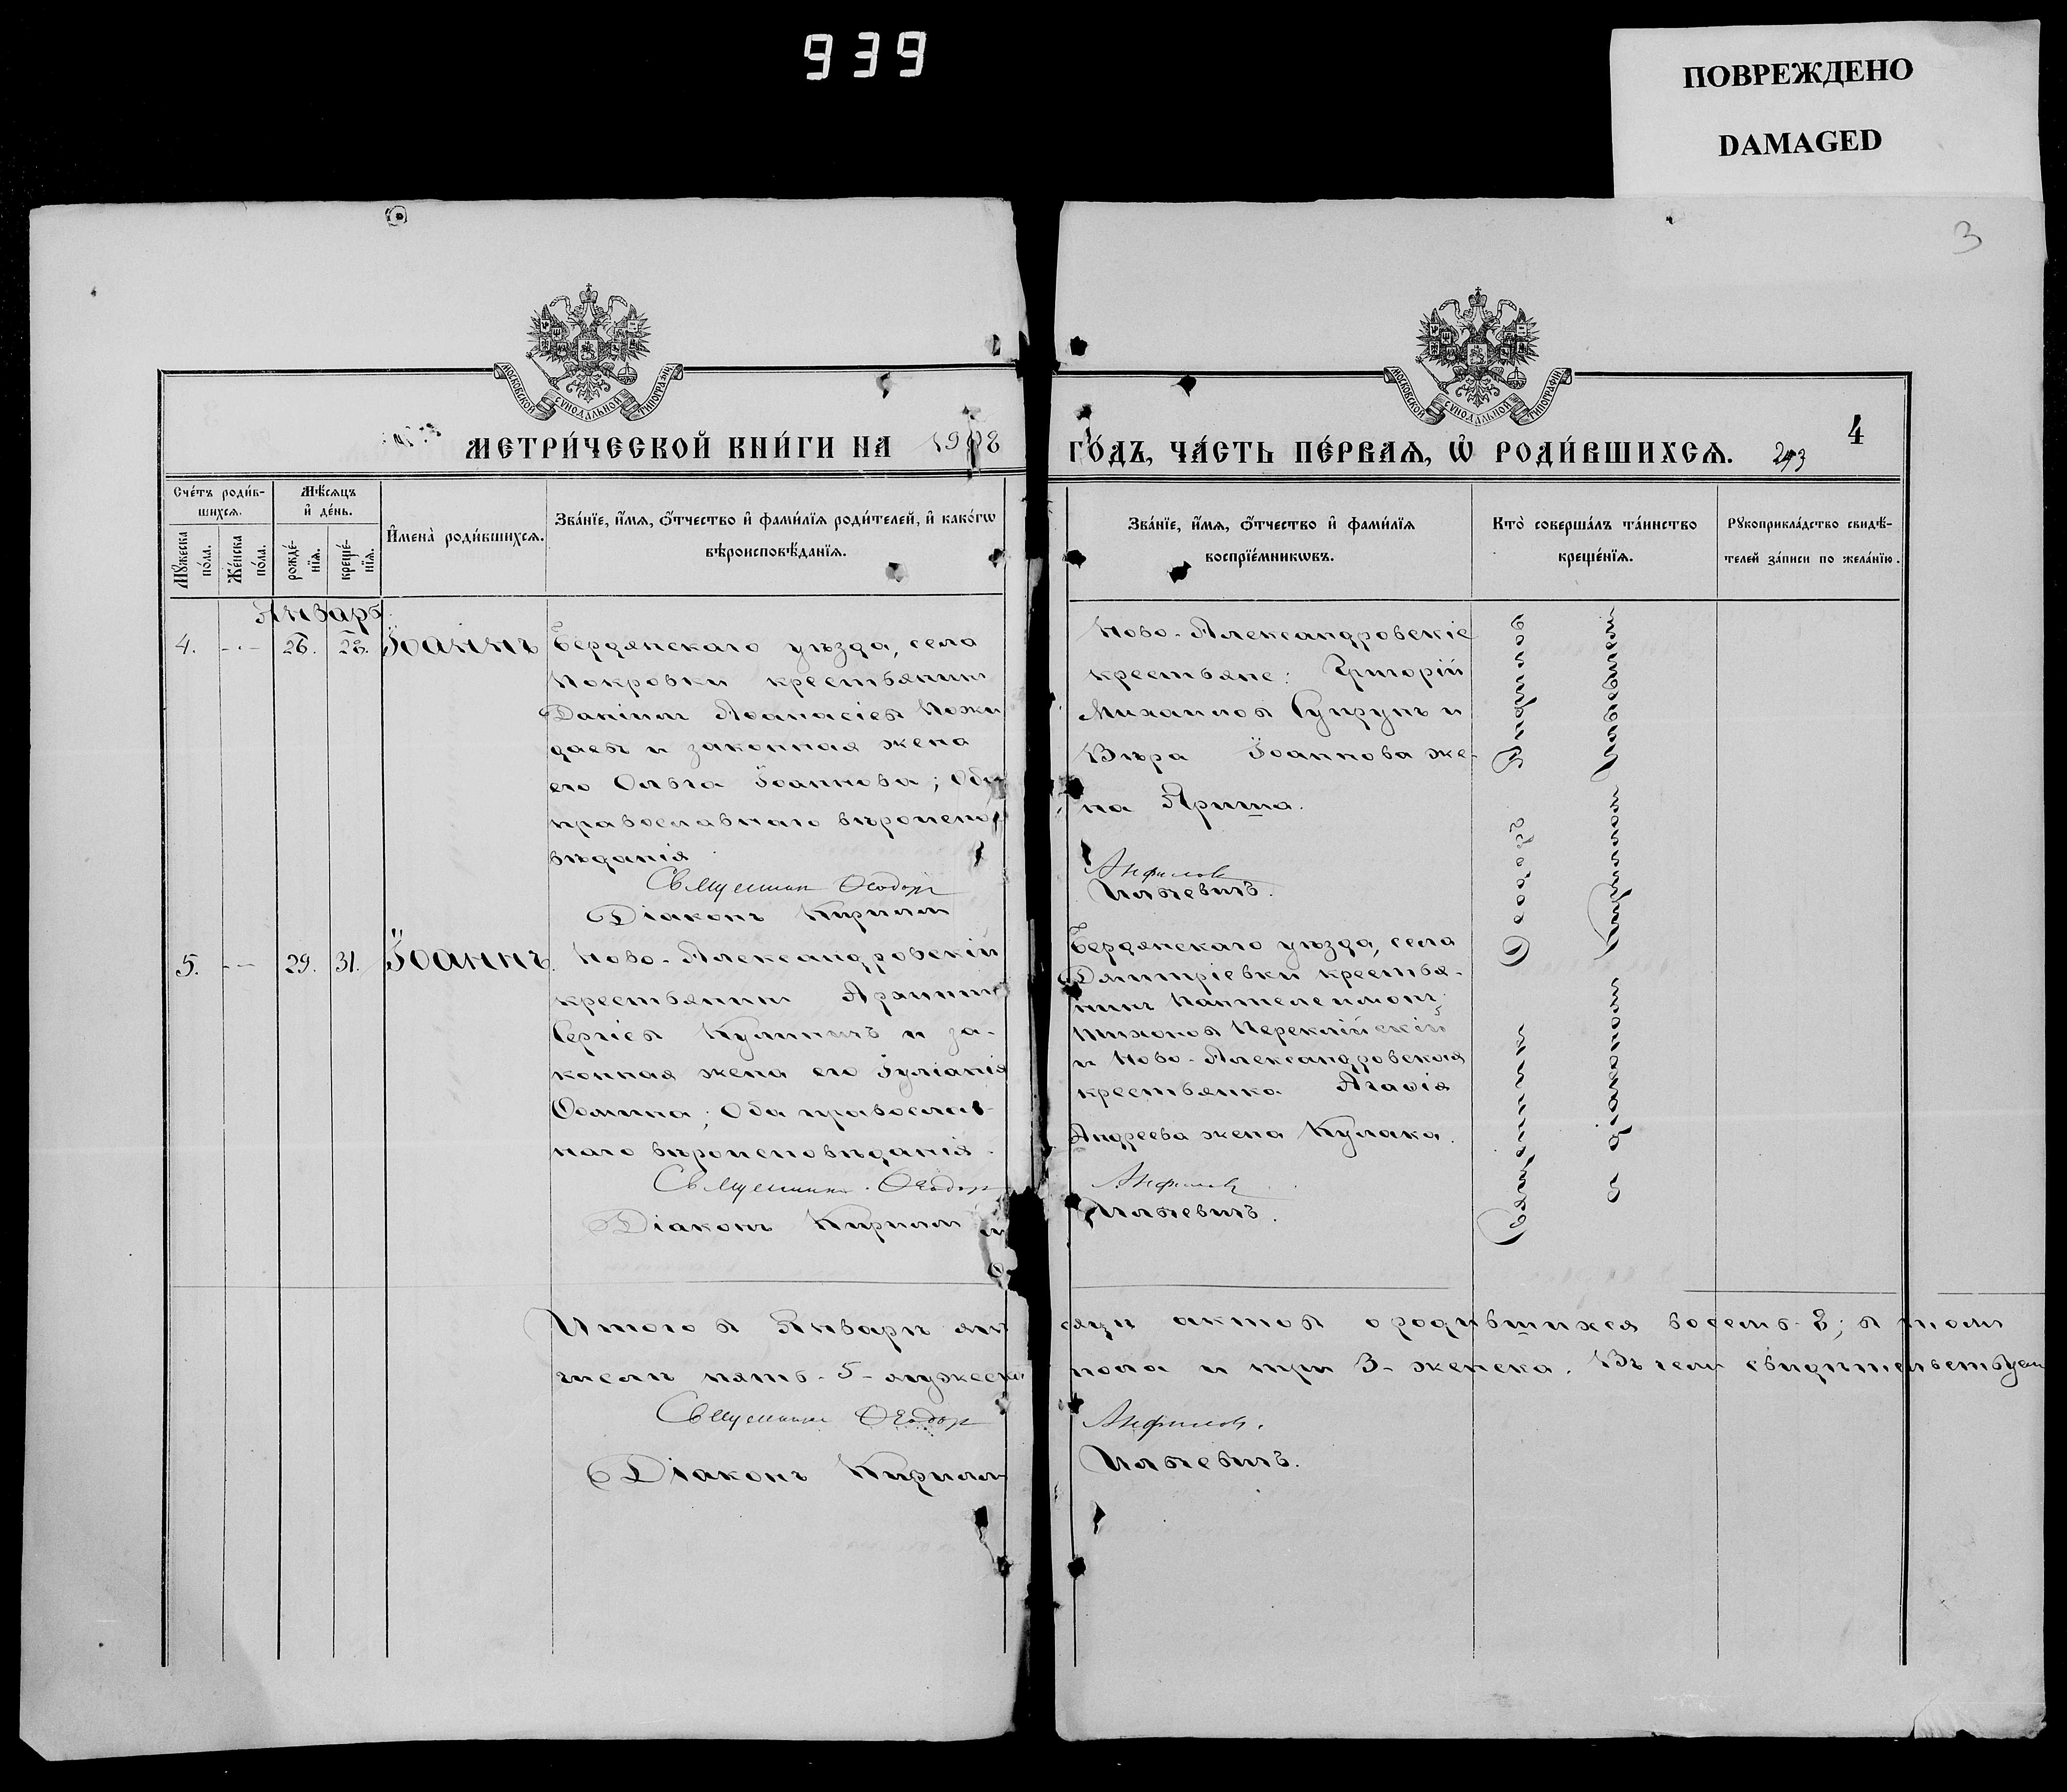 939
ПОВРЕЖДЕНО
DAMAGED
3
МОСКОВСКОЙ СѴНОДАЛЬНОЙ ТИПОГРАФІИ
МОСКОВСКОЙ СѴНОДАЛЬНОЙ ТИПОГРАФІИ
МЕТРИ́ЧЕСКОЙ КНИ́ГИ НА 1908
ГО́ДЪ, ЧА́СТЬ ПЕ́РВАѦ, Ѡ҆ РОДИ́ВШИХСѦ.
4
Сче́тъ роди́в-
шихсѧ.
Мꙋжеска по́ла.
Же́нска по́ла.
Мѣ́сѧцъ
и҆ де́нь.
рожде́-нїѧ.
креще́-нїѧ.
И҆мена̀ роди́вшихсѧ.
Зва́нїе, и҆́мѧ, ѻ҆́тчество и҆ фами́лїѧ роди́телей, и҆ како́гѡ
вѣроисповѣ́данїѧ.
Зва́нїе, и҆́мѧ, ѻ҆́тчество и҆ фами́лїѧ
воспрїе́мникѡвъ.
Кто̀ соверша́лъ та́инство
креще́нїѧ.
Рꙋкоприкла́дство свидѣ́-
телей за́писи по жела́нїю.
Январь
4. - - 26. 28. Іоаннъ
Бердянскаго уѣзда, села
Покровки крестьянинъ
Даніилъ Аѳанасіевъ Пожи
даевъ и законная жена
его Ольга Іоаннова; Оба
православнаго вѣроиспо
вѣданія
Священникъ Ѳеодоръ
Діаконъ Кириллъ
Ново-Александровскіе
крестьяне: Григорій
Михаиловъ Супрунъ и
Вѣра Іоаннова же-
на Яриша.
Анфиловъ
Ильевичъ.
Священникъ Ѳеодоръ Анфиловъ
съ діакономъ Кирилломъ Ильевичемъ
5. - - 29. 31. Іоаннъ.
Ново-Александровскій
крестьянинъ Архиппъ
Сергіевъ Куличъ и за-
конная жена его Іуліанія
Ѳомина; Оба православ-
наго вѣроисповѣданія.
Священникъ Ѳеодоръ
Діаконъ Кириллъ
Бердянскаго уѣзда, села
Димитріевки крестья-
нинъ Пантелеимонъ
Тихоновъ
и Ново-Александровская
крестьянка Агаѳія
Андреева жена Кулака.
Анфиловъ
Ильевичъ.
Итого въ Январѣ мѣсяцѣ актовъ о родившихся восемь 8; въ томъ
числѣ пять-5-мужеска пола и три 3-женска. Въ чемъ свидѣтельствуемъ
Священникъ Ѳеодоръ Анфиловъ.
Діаконъ Кириллъ Ильевичъ.